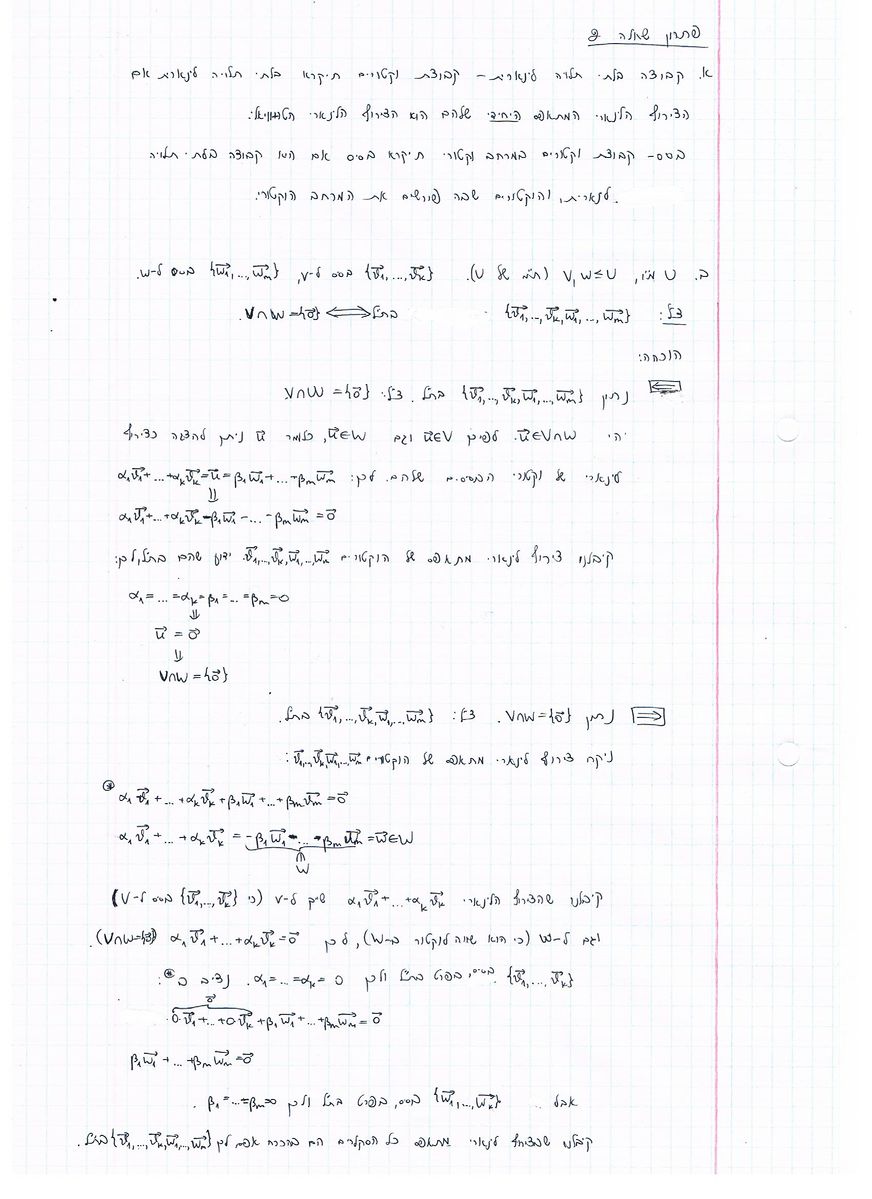 פתרון שאלה 2
א. קבוצה בלתי תלויה לינארית – קבוצת וקטורים תיקרא בלתי תלויה לינארית אם
הצירוף הלינארי המתאפס היחידי שלהם הוא הצירוף הלינארי הטריוויאלי.
בסיס - קבוצת וקטורים במרחב וקטורי תיקרא בסיס אם היא קבוצה בלתי תלויה
לינארית, והוקטורים שבה פורשים את המרחב הוקטורי.
ב. U מ"ו, V,W≤U (תת"מ של U). {v⃗₁,...,v⃗ₖ} בסיס ל-V, {w⃗₁,...,w⃗ₘ} בסיס ל-W.
צ"ל: {v⃗₁,...,v⃗ₖ,w⃗₁,...,w⃗ₘ} בת"ל ⟺ V∩W={0⃗}.
הוכחה:
⟸ נתון {v⃗₁,...,v⃗ₖ,w⃗₁,...,w⃗ₘ} בת"ל. צ"ל: V∩W={0⃗}
יהי u⃗∈V∩W. לפיכך u⃗∈V וגם u⃗∈W, כלומר u⃗ ניתן להצגה כצירוף
לינארי של וקטורי הבסיסים שלהם. לכן: α₁v⃗₁+...+αₖv⃗ₖ=u⃗=β₁w⃗₁+...+βₘw⃗ₘ
⇓
α₁v⃗₁+...+αₖv⃗ₖ-β₁w⃗₁-...-βₘw⃗ₘ=0⃗
קיבלנו צירוף לינארי מתאפס של הוקטורים v⃗₁,...,v⃗ₖ,w⃗₁,...,w⃗ₘ. ידוע שהם בת"ל, לכן:
α₁=...=αₖ=β₁=...=βₘ=0
⇓
u⃗=0⃗
⇓
V∩W={0⃗}
⟹ נתון V∩W={0⃗}. צ"ל: {v⃗₁,...,v⃗ₖ,w⃗₁,...,w⃗ₘ} בת"ל.
ניקח צירוף לינארי מתאפס של הוקטורים v⃗₁,...,v⃗ₖ,w⃗₁,...,w⃗ₘ:
⊛ α₁v⃗₁+...+αₖv⃗ₖ+β₁w⃗₁+...+βₘw⃗ₘ=0⃗
α₁v⃗₁+...+αₖv⃗ₖ=-β₁w⃗₁-...-βₘw⃗ₘ=w⃗∈W
⋒
W
קיבלנו שהצירוף הלינארי α₁v⃗₁+...+αₖv⃗ₖ שייך ל-V (כי {v⃗₁,...,v⃗ₖ} בסיס ל-V)
וגם ל-W (כי הוא שווה לוקטור ב-W), לכן α₁v⃗₁+...+αₖv⃗ₖ=0⃗ (V∩W={0⃗}).
{v⃗₁,...,v⃗ₖ} בסיס, בפרט בת"ל ולכן α₁=...=αₖ=0. נציב ב⊛:
0⃗
0·v⃗₁+...+0·v⃗ₖ+β₁w⃗₁+...+βₘw⃗ₘ=0⃗
β₁w⃗₁+...+βₘw⃗ₘ=0⃗
אבל {w⃗₁,...,w⃗ₖ} בסיס, בפרט בת"ל ולכן β₁=...=βₘ=0.
קיבלנו שבצירוף לינארי מתאפס כל הסקלרים הם בהכרח אפס לכן {v⃗₁,...,v⃗ₖ,w⃗₁,...,w⃗ₘ} בת"ל.